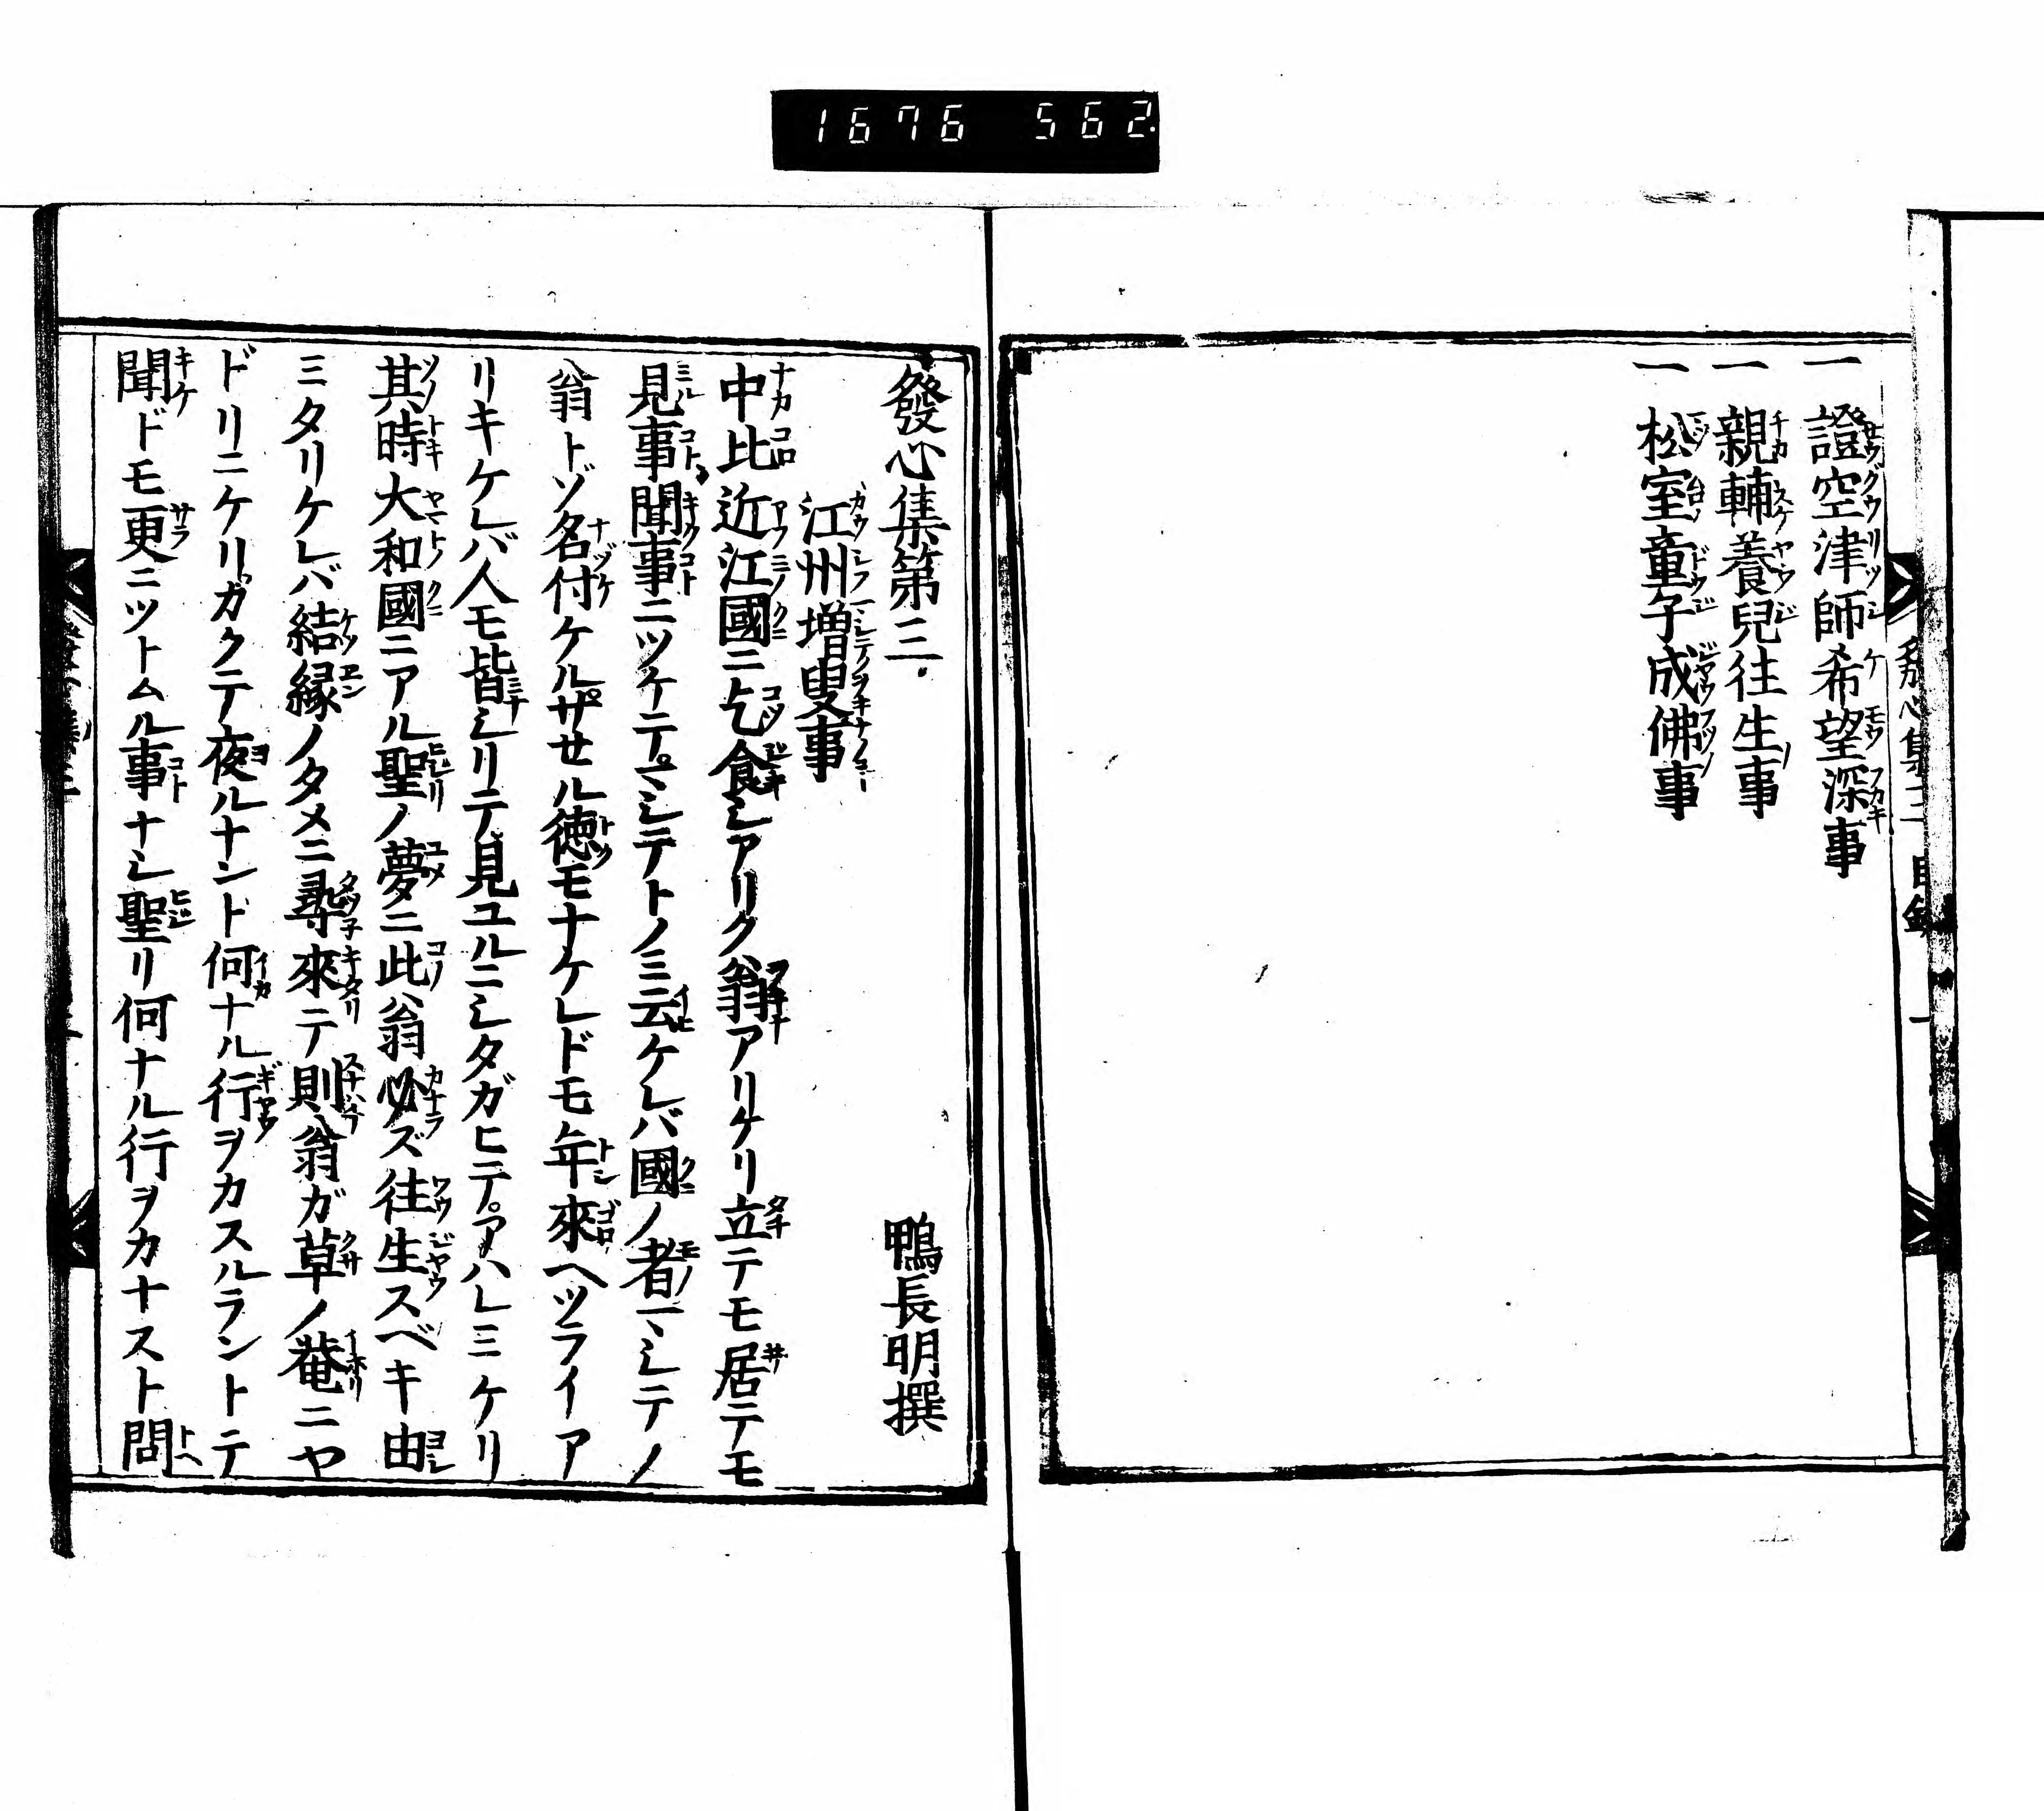 1676 562
一 證空津師希望深事
一 親輔養兒往生事
一 松室童子成佛事
發心集三 目錄 一
發心集第三 鴨長明撰
江州増叟事
中比近江國ニ乞食シアリク翁アリケリ立テモ居テモ
見事聞事ニツケテマシテトノミ云ケレバ國ノ者マシテノ
翁トゾ名付ケルサセル徳モナケレドモ年來ヘツライア
リキケレバ人モ皆シリテ見ユルニシタガヒテアハレミケリ
其時大和國ニアル聖ノ夢ニ此翁必ズ往生スベキ由
ミタリケレバ結縁ノタメニ尋來テ則翁ガ草ノ菴ニヤ
ドリニケリカクテ夜ルナンド何ナル行ヲカスルラントテ
聞ドモ更ニツトムル事ナシ聖リ何ナル行ヲカナスト問